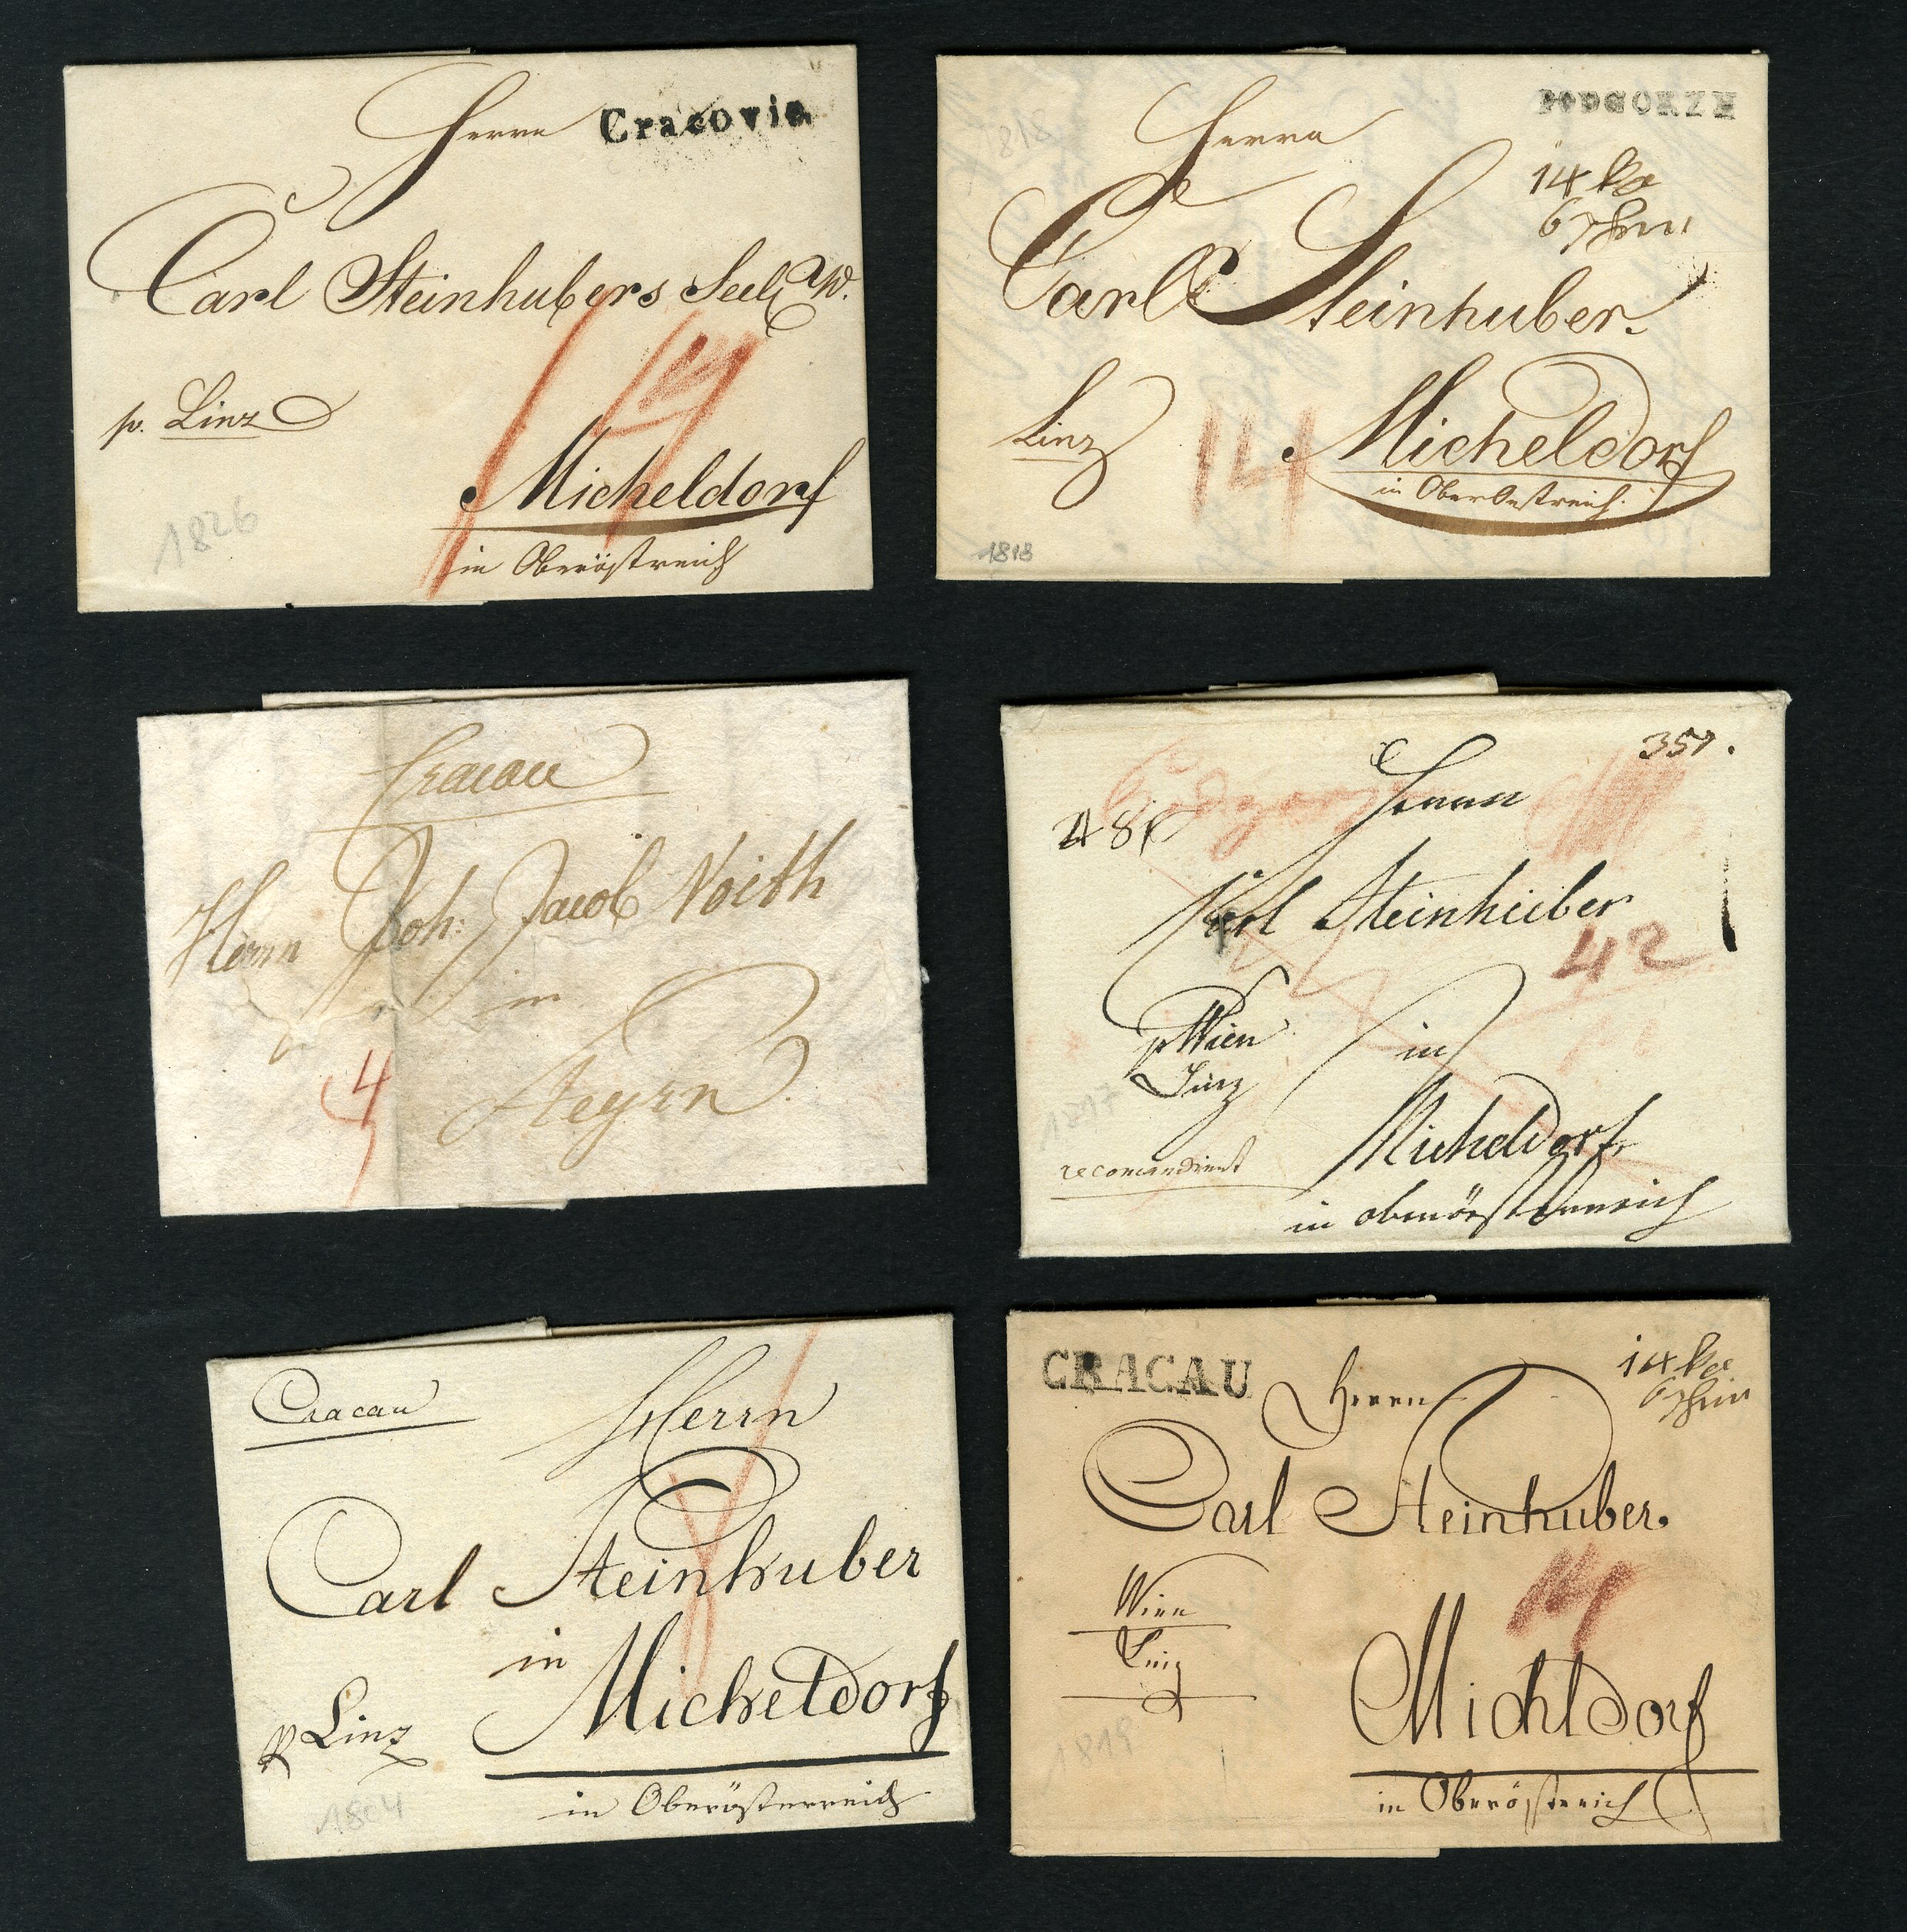 Cracovie
Herrn
Carl Steinhubers Seel. W.
p. Linz
Micheldorf
in Oberöstreich
1826
PODGORZE
1818
Herrn
14 kr
Carl Steinhuber.
Linz
14
Micheldorf
in OberOestreich.
1818
Cracau
Herrn Joh: Jacob Voith
in
4
Steyrn.
351.
Herrn
Karl Steinhuber
42
p Wien
Linz
in
1817
Micheldorf
recomandirt
in oberösterreich
Cracau
Herrn
Carl Steinhuber
in
Micheldorf
p Linz
in Oberösterreich
1804
CRACAU
14 kr
Herrn
Carl Steinhuber.
Wien
Linz
14
Michldorf
1819
in Oberöstreich